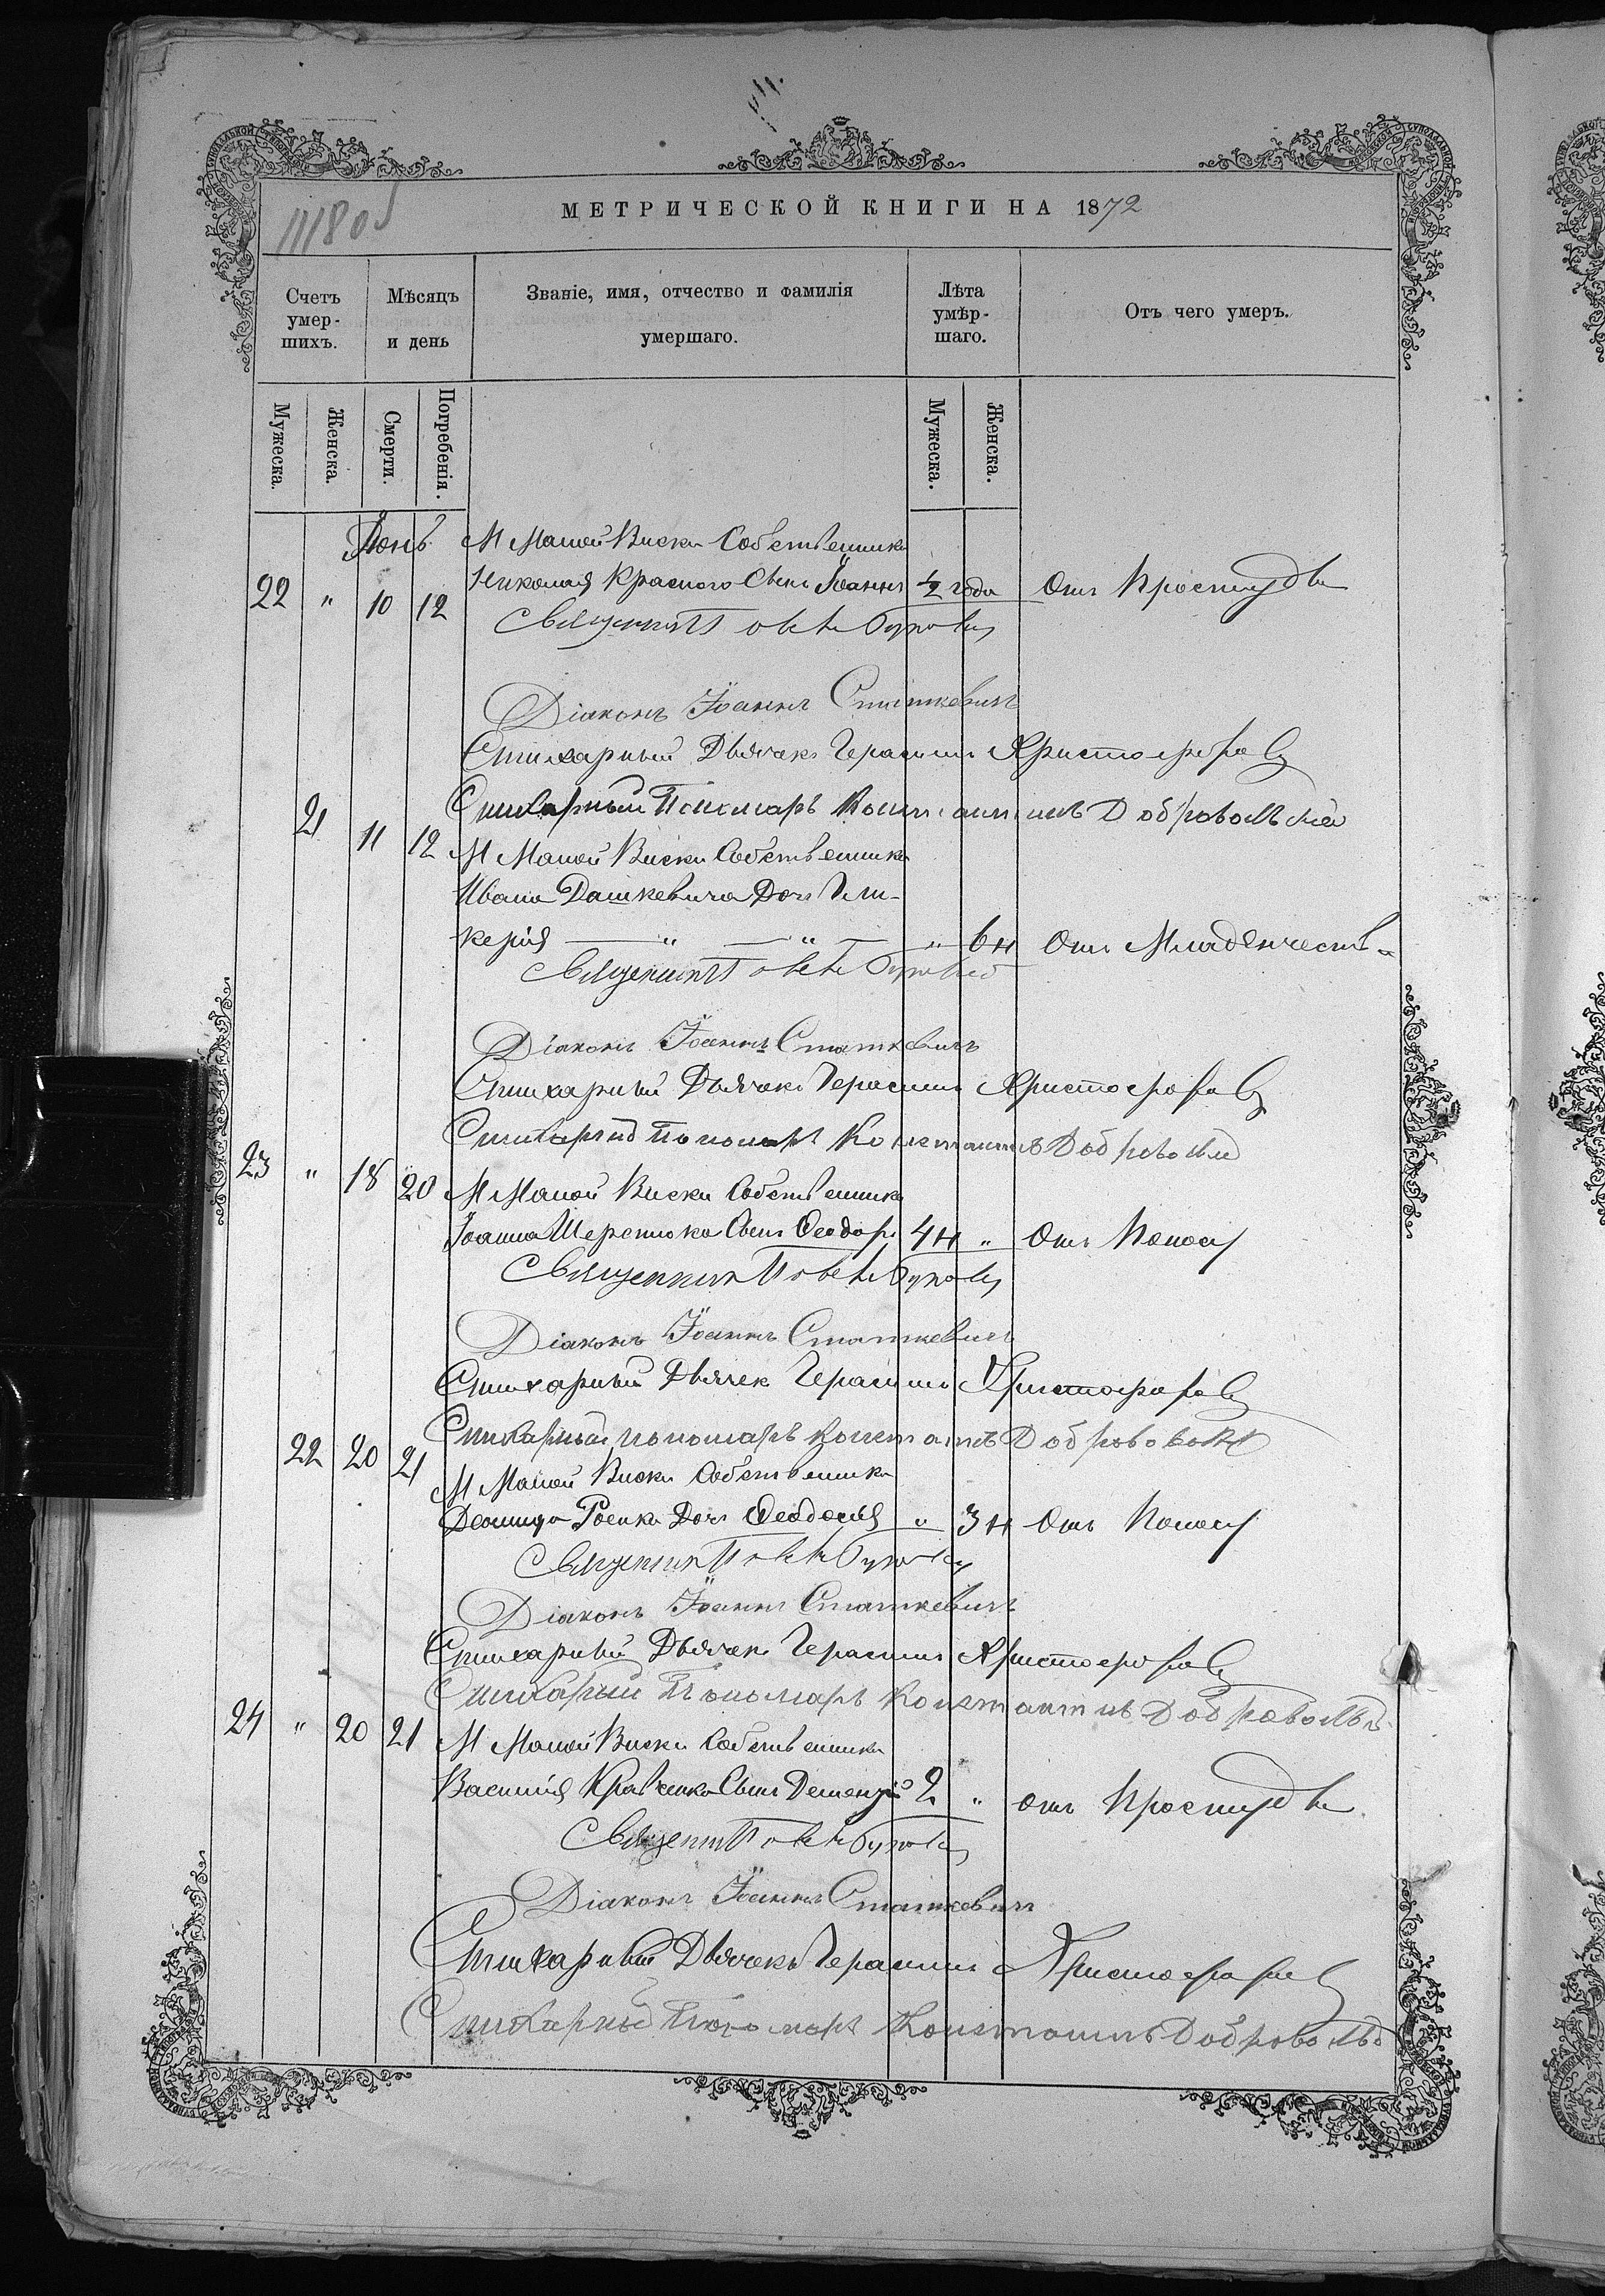 МЕТРИЧЕСКОЙ КНИГИ НА 1872
Счетъ умер-шихъ.
Мѣсяцъ и день
Званіе, имя, отчество и фамилія умершаго.
Лѣта умѣр-шаго.
Отъ чего умеръ.
Мужеска.
Женска.
Смерти.
Погребенія.
Мужеска.
Женска.
Іюнь М Малой Виски Собственника
22 " 10 12 Николая Красного Сынъ Іоаннъ ½ года Отъ Простуды
Священникъ
Діаконъ Іоаннъ Статкевичъ
Стихарный Дьячекъ Герасимъ Христофоровъ
Стихарный Пономарь Константинъ Добровольскій
21 11 12 М Малой Виски Собственника
Ивана Дашкевича Дочь Гли-
керія " " " 6 н Отъ Младенчества
Священникъ
Діаконъ Іоаннъ Статкевичъ
Стихарный Дьячекъ Герасимъ Христофоровъ
Стихарный Пономарь Константинъ
23 " 18 20 М Малой Виски Собственника
Іоанна Сынъ Ѳеодоръ 4 н " Отъ Поносу
Священникъ
Діаконъ Іоаннъ Статкевичъ
Стихарный Дьячек Герасимъ Христофоровъ
Стихарный пономарь
22 20 21 М Малой Виски Собственника
Дочь Ѳеодосія " 3 н Отъ Поносу
Священникъ
Діаконъ Іоаннъ Статкевичъ
Стихарный Дьячекъ Герасимъ Христофоровъ
Стихарный Пономарь Константинъ
24 " 20 21 М Малой Виски Собственника
Василія Кравченка Сынъ 2 " отъ Простуды
Священникъ
Діаконъ Іоаннъ Статкевичъ
Стихарный Дьячекъ Герасимъ Христофоровъ
Стихарный Пономарь